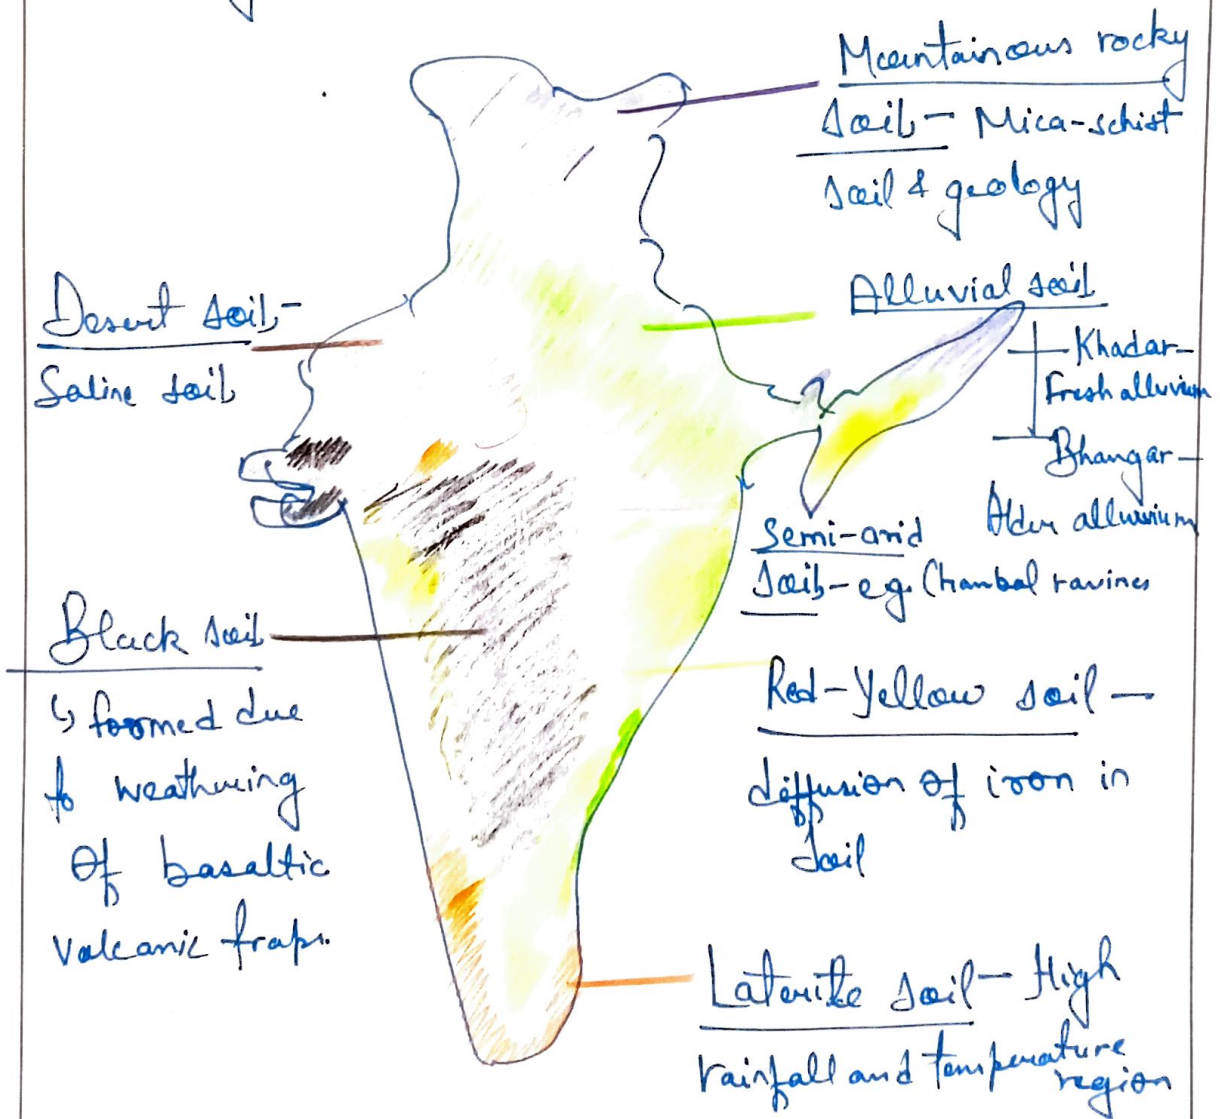 Mountainous rocky
soil - Mica-schist
soil & geology
Desert soil-
Saline soil
Alluvial soil
Khadar-
Fresh alluvium
Bhangar-
Older alluvium
Semi-arid
soil-e.g. Chambal ravines
Black soil
↳ formed due
to weathering
of basaltic
volcanic traps.
Red-Yellow soil -
diffusion of iron in
soil
Laterite soil - High
rainfall and temperature
region